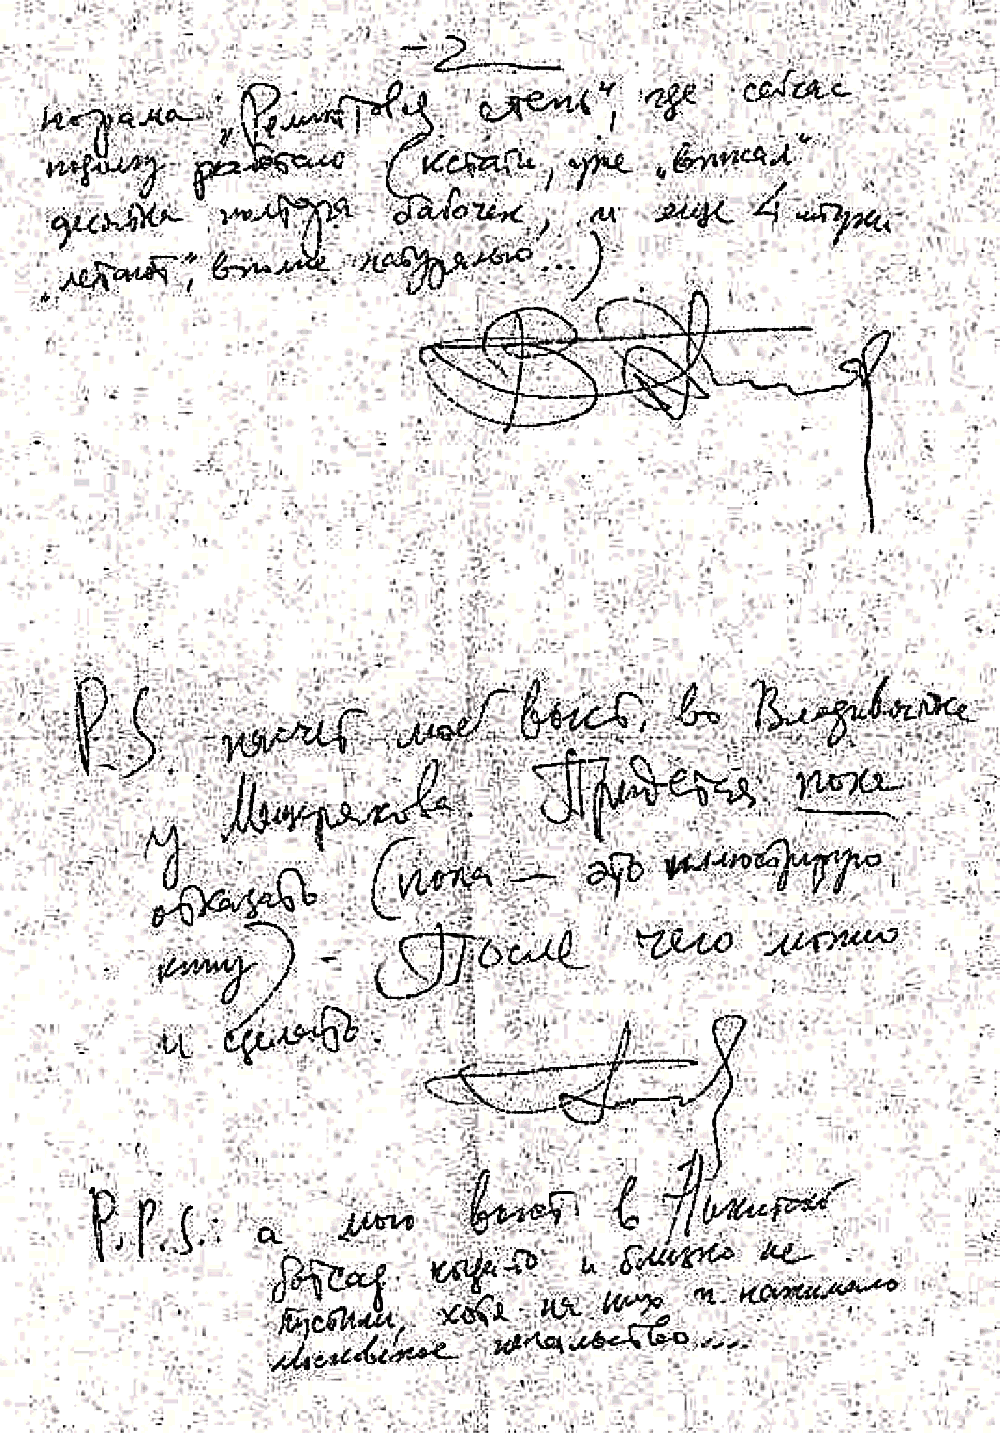 - 2
-норама „Реликтовая степь“, где сейчас
подолгу работаю (кстати, уже „впихал“
десятка полтора бабочек, и еще 4 штуки
„летают“, вполне натурально...)
P.S. насчет моей выст. во Владивостоке
у Мещерякова. Придется пока
отказать (пока – это иллюстрирую
книгу) – После чего можно
и сделать.
P.P.S.: а мою выст. в Никитский
ботсад когда-то и близко не
пустили, хотя на них и нажимало
московское начальство....